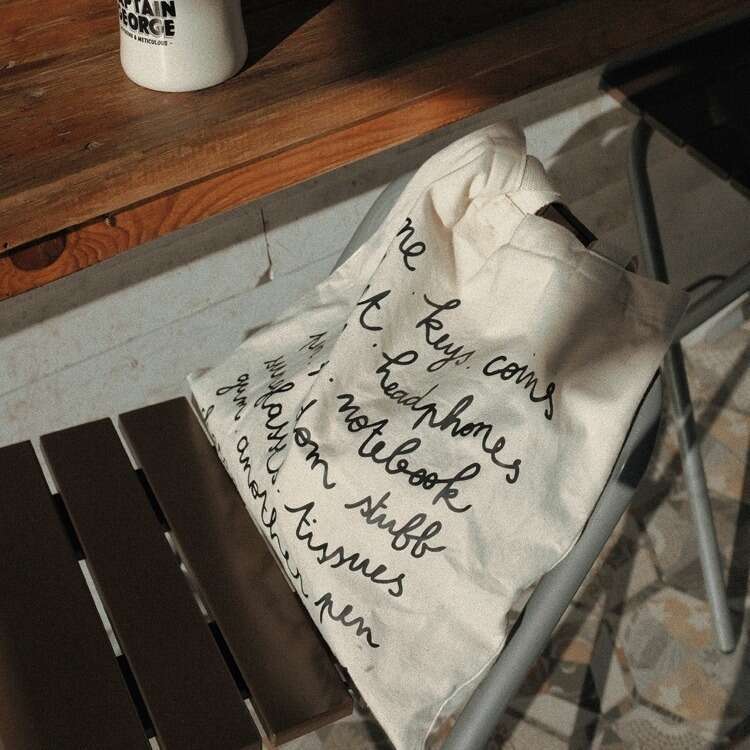 PTAIN
GEORGE
& METICULOUS -
ne keys. coins
t. headphones
notebook
om stuff
tissues
gum another pen